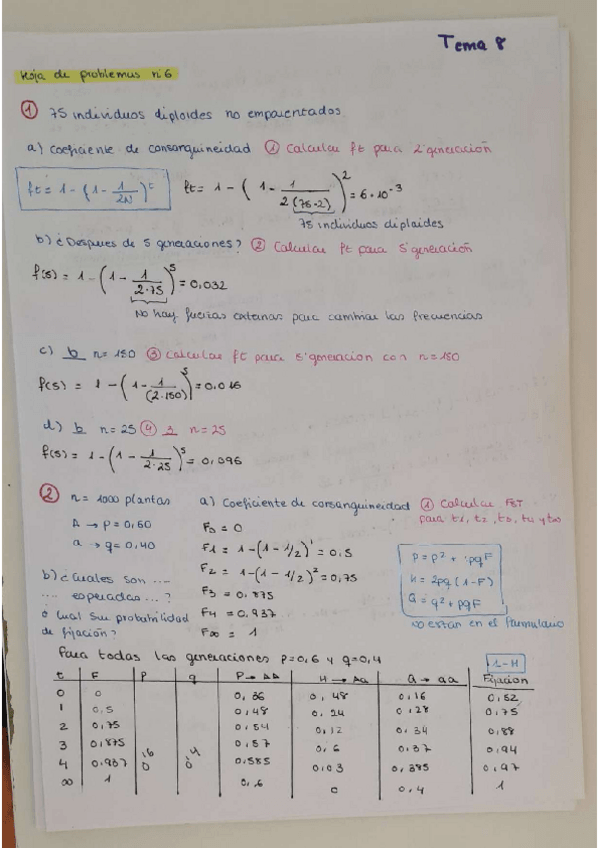 Tema 8
Hoja de problemas nº6
① 75 individuos diploides no emparentados
a) Coeficiente de consanguineidad ① Calcular ft para 2ªgeneración
ft = 1 - (1 - 1/2N)^t ft = 1 - (1 - 1/2(75·2))^2 = 6·10^-3
75 individuos diploides
b) ¿Despues de 5 generaciones? ② Calcular ft para 5ªgeneración
f(5) = 1 - (1 - 1/2·75)^5 = 0,032
No hay fuerzas externas para cambiar las frecuencias
c) b n=150 ③ Calcular ft para 5ªgeneracion con n=150
f(5) = 1 - (1 - 1/(2·150))^5 = 0,016
d) b n=25 ④ 3 n=25
f(5) = 1 - (1 - 1/2·25)^5 = 0,096
② n = 1000 plantas a) Coeficiente de consanguineidad ① Calcular FST
para t1, t2, t3, t4 y t∞
A → p = 0,60 F0 = 0
a → q = 0,40 F1 = 1-(1-1/2)^1 = 0,5
P = p² + pqF
F2 = 1-(1-1/2)² = 0,75
H = 2pq (1-F)
b) ¿Cuales son ... F3 = 0,875
Q = q² + pqF
... esperadas ...? F4 = 0,937
NO están en el formulario
¿Cual su probabilidad F∞ = 1
de fijación?
Para todas las generaciones p=0,6 y q=0,4
1-H
t F p q P → AA H → Aa Q → aa Fijación
0 0 0,36 0,48 0,16 0,52
1 0,5 0,48 0,24 0,28 0,75
2 0,75 0,54 0,12 0,34 0,88
3 0,875 0,57 0,6 0,37 0,94
4 0,937 0,6 0,4 0,585 0,03 0,385 0,97
∞ 1 0,6 0 0,4 1